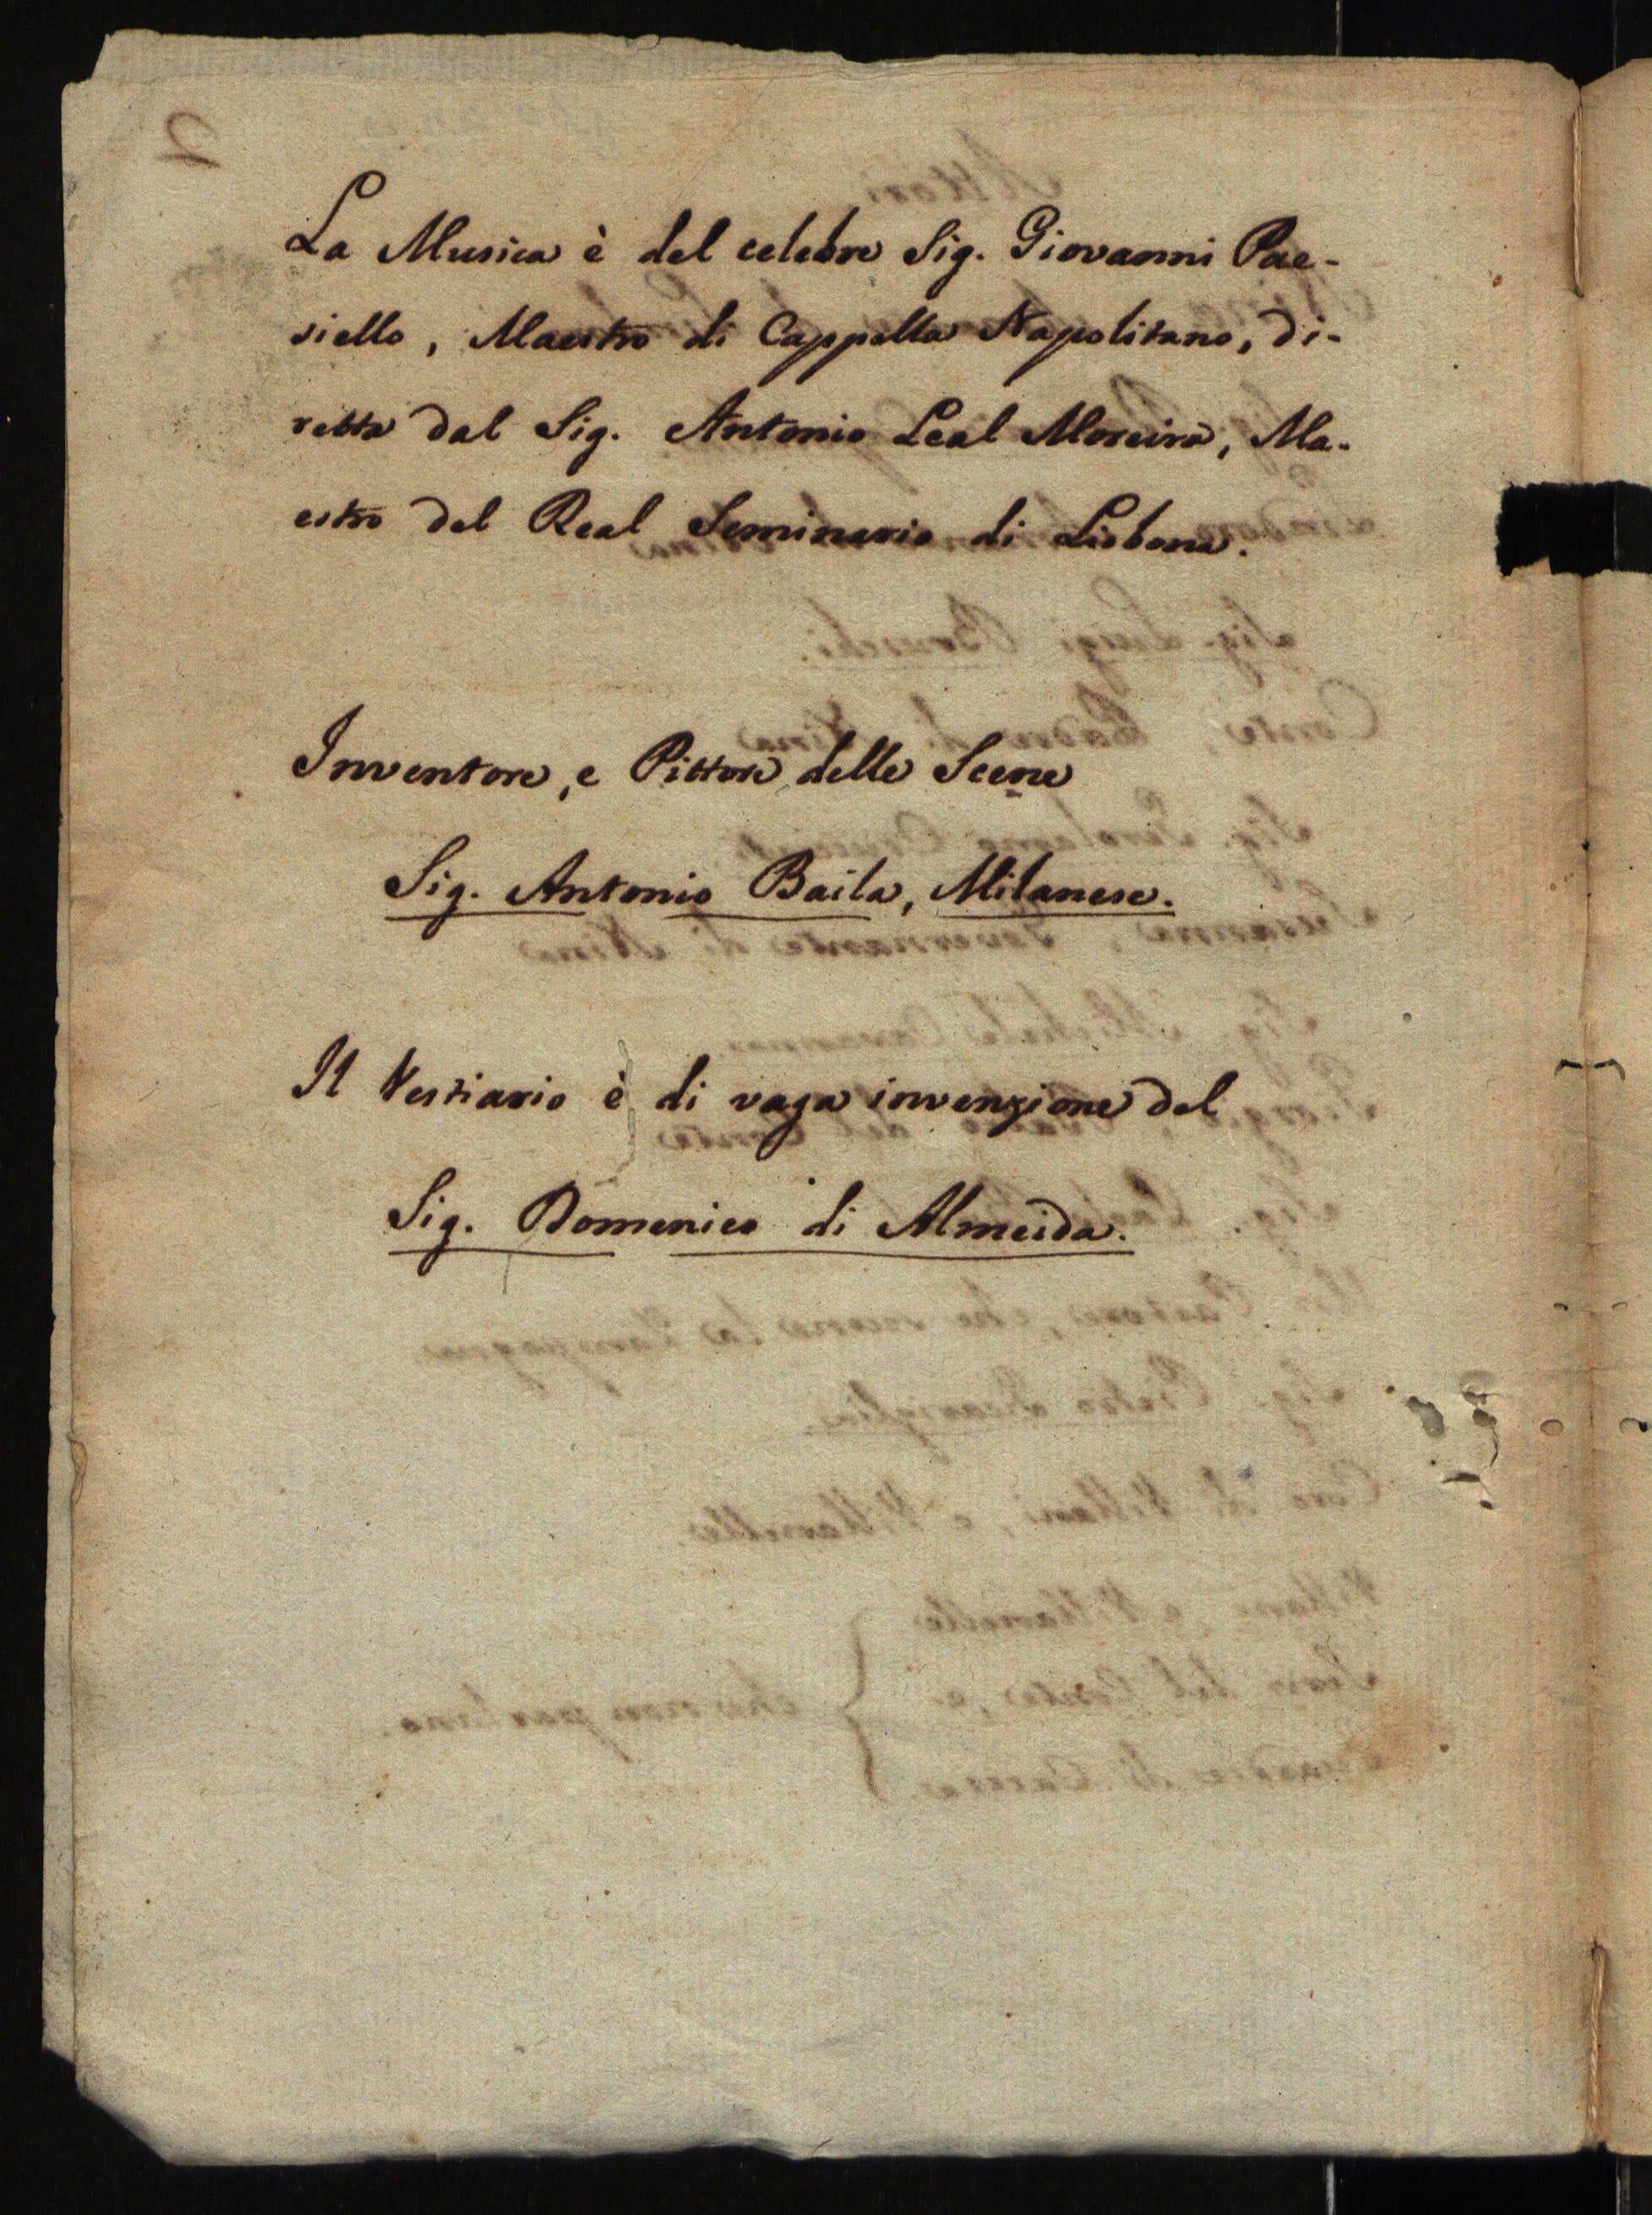 La Musica è del celebre Sig. Giovanni Pae-
siello, Maestro di Cappella Napolitano, di-
retta dal Sig. Antonio Leal Moreira, Ma-
estro del Real Seminario di Lisbona.
Inventore, e Pittore delle Scene
Sig. Antonio Baila, Milanese.
Il Vestiario è di vaga invenzione del
Sig. Domenico di Almeida.